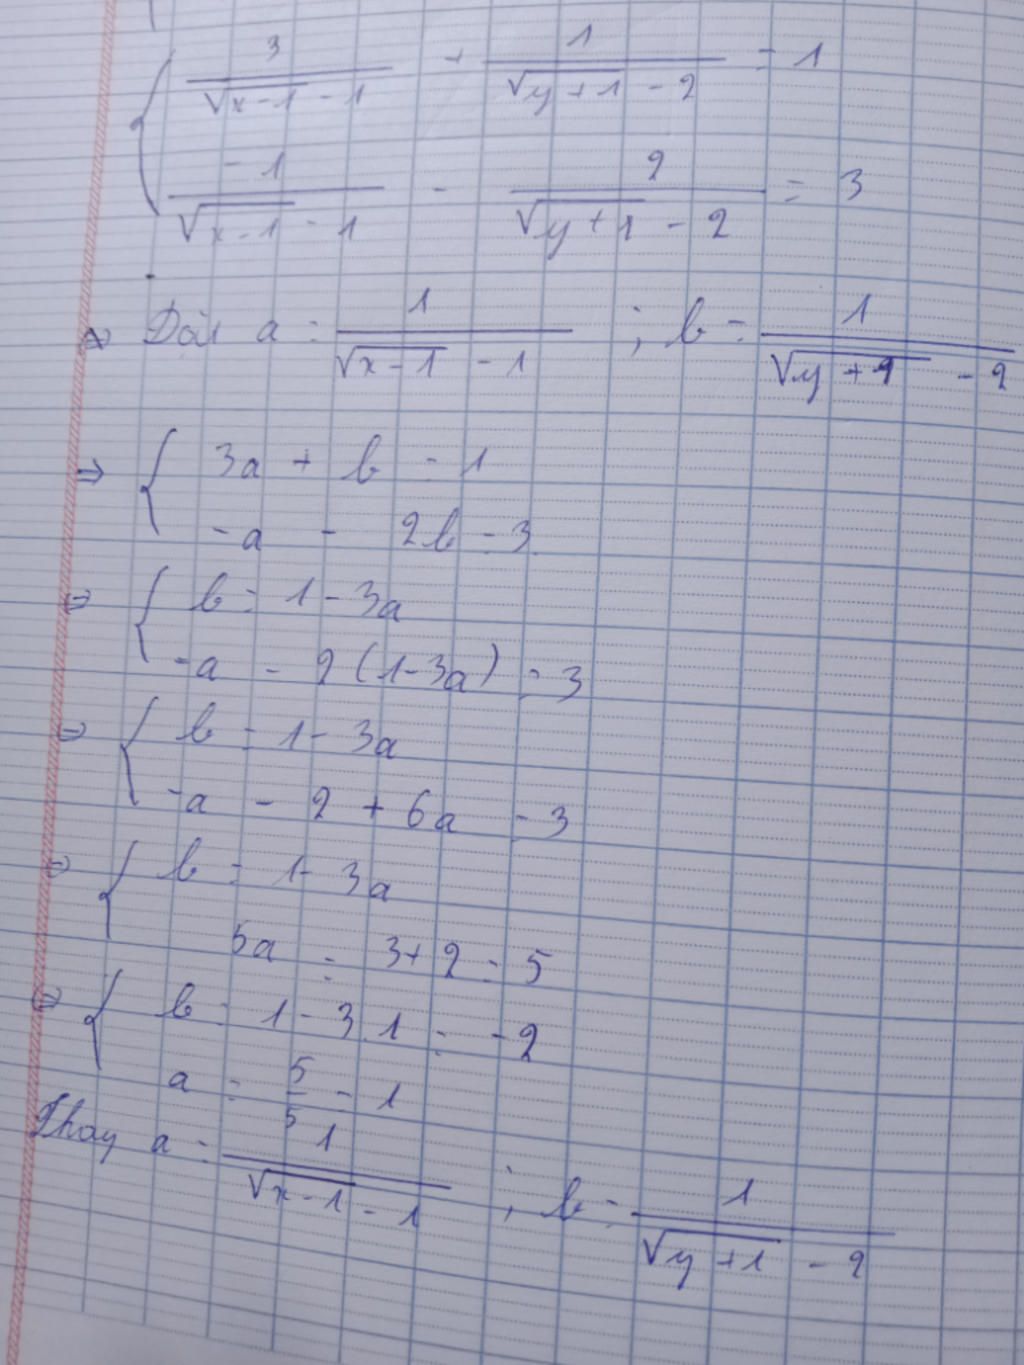 { 3/(√(x-1) - 1) + 1/(√(y+1) - 2) = 1
-1/(√(x-1) - 1) - 2/(√(y+1) - 2) = 3
Đặt a = 1/(√(x-1) - 1) ; b = 1/(√(y+1) - 2)
⇒ { 3a + b = 1
-a - 2b = 3
⇒ { b = 1 - 3a
-a - 2(1-3a) = 3
⇒ { b = 1 - 3a
-a - 2 + 6a = 3
⇒ { b = 1 - 3a
5a = 3+2 = 5
⇒ { b = 1 - 3.1 = -2
a = 5/5 = 1
Thay a = 1/(√(x-1) - 1) ; b = 1/(√(y+1) - 2)